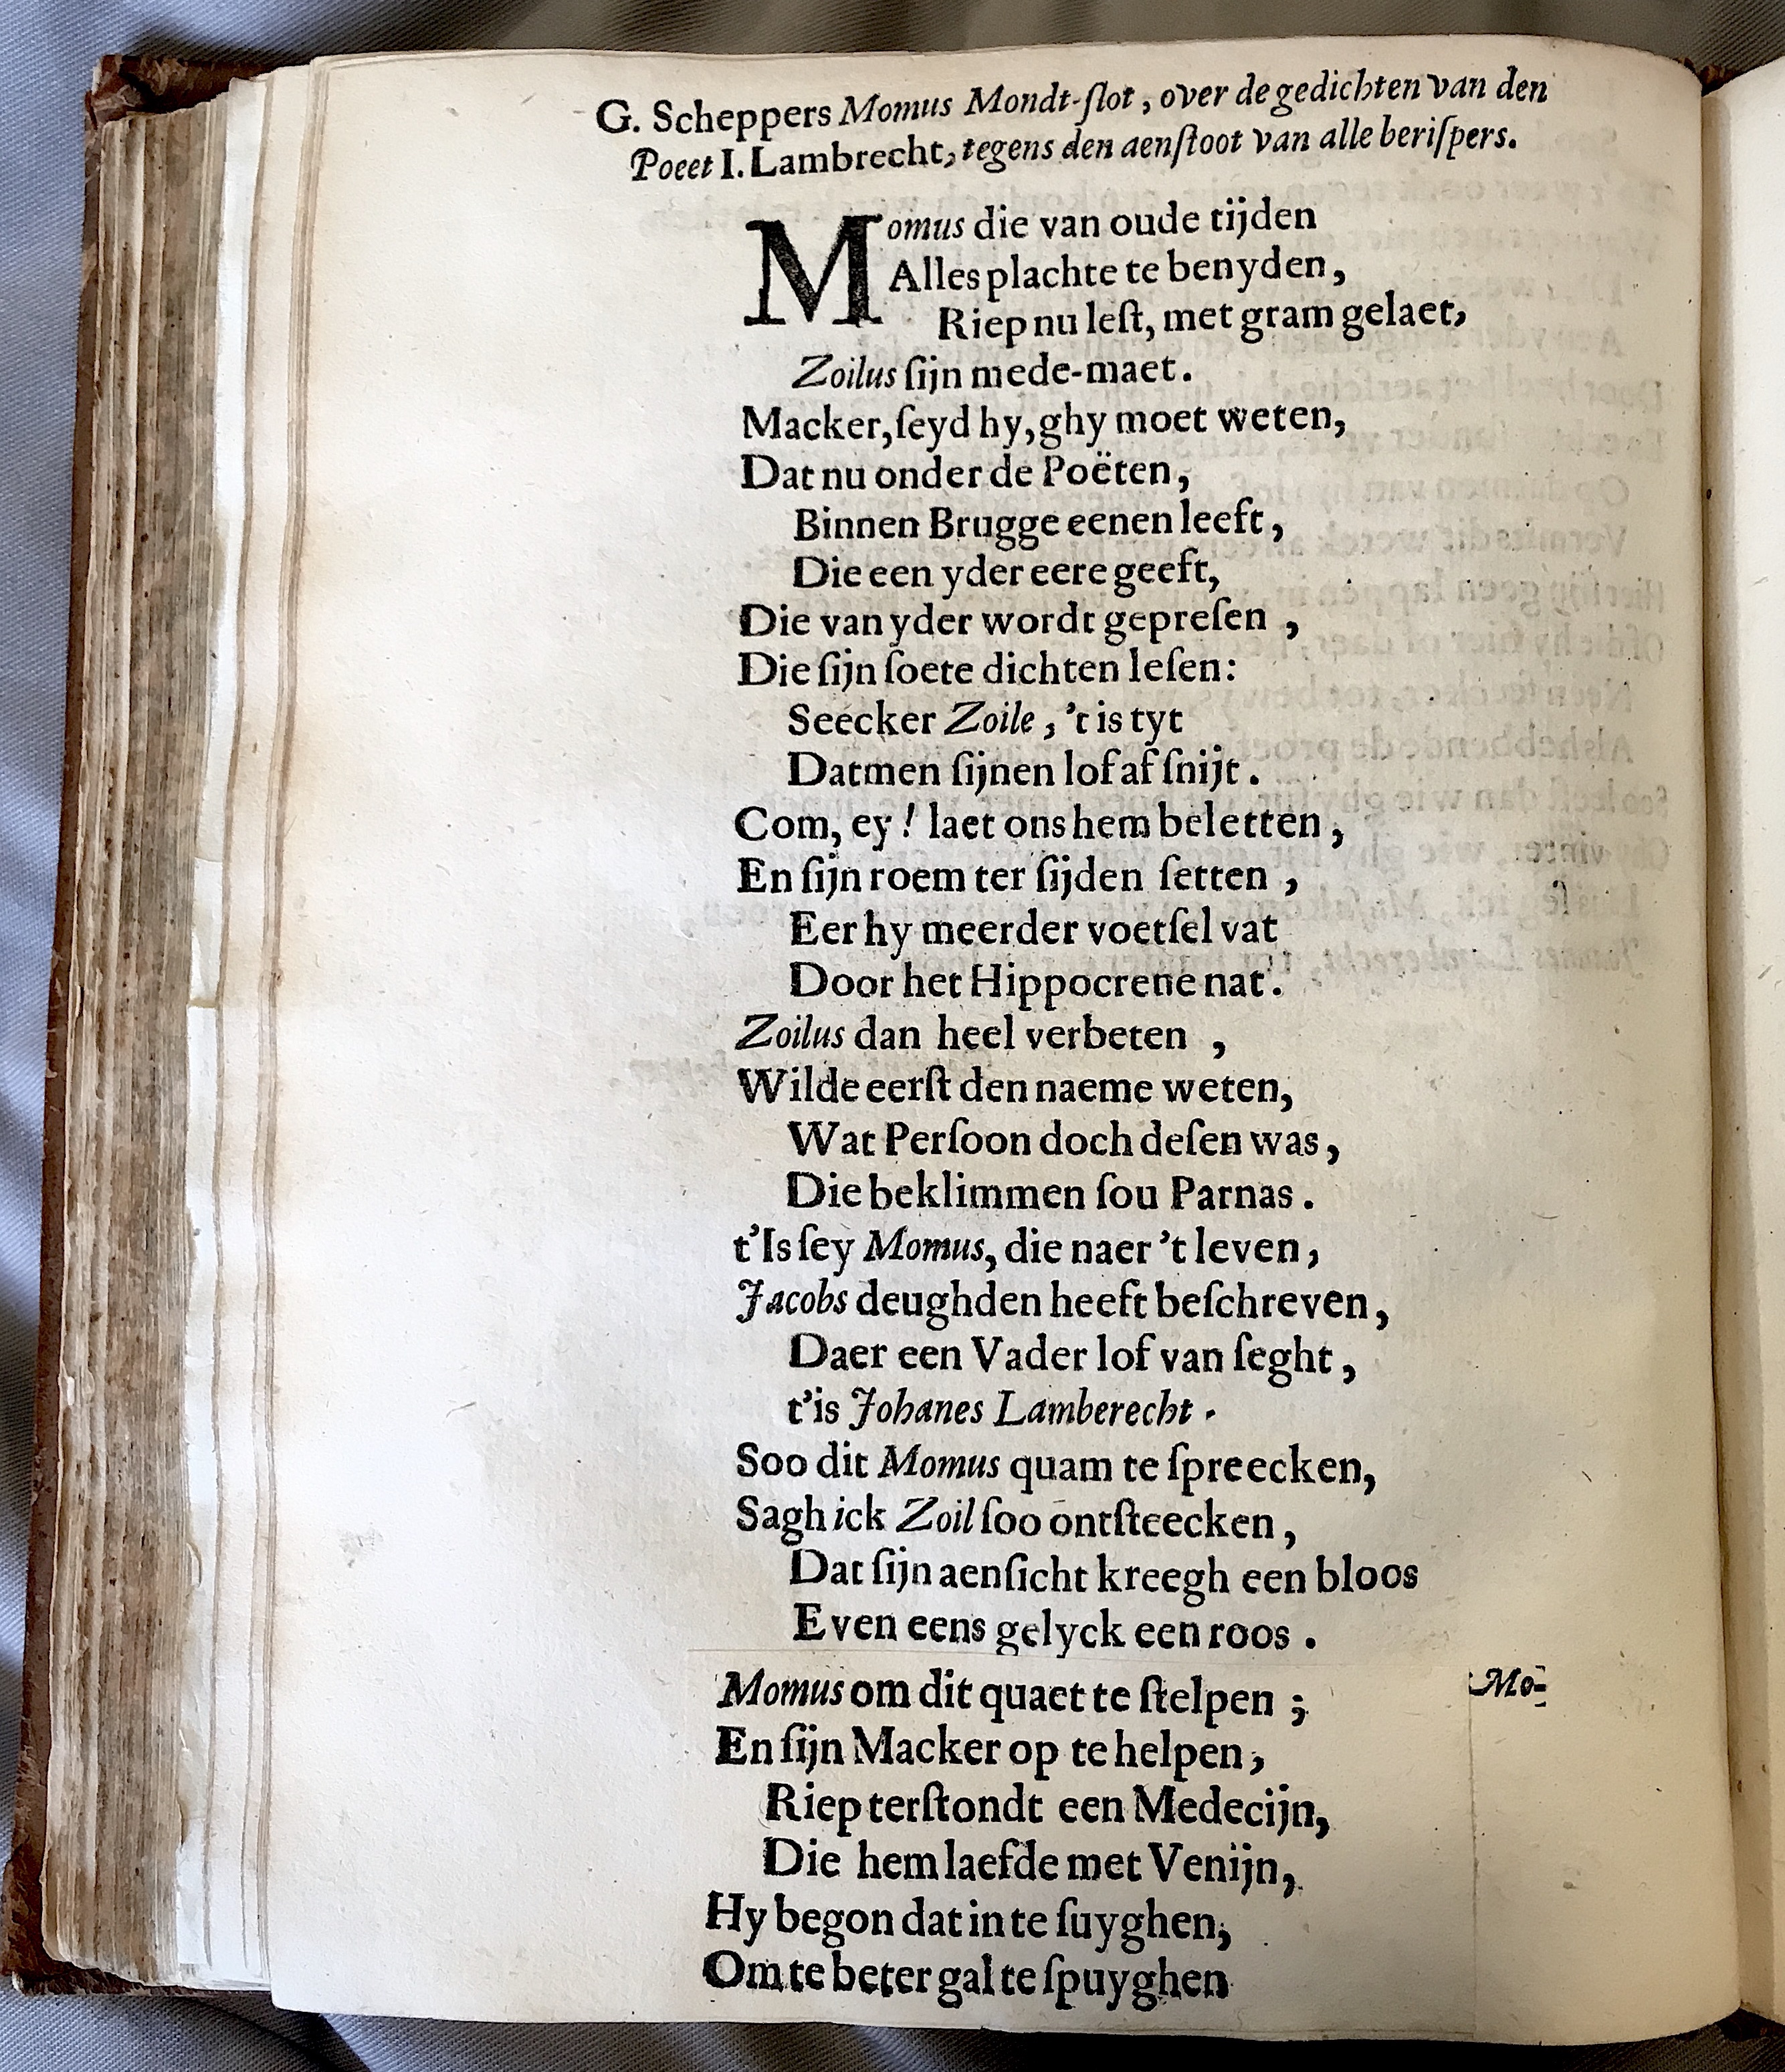 G. Scheppers Momus Mondt-ſlot, over de gedichten van den
Poeet I. Lambrecht, tegens den aenſtoot van alle beriſpers.
Momus die van oude tijden
Alles plachte te benyden,
Riep nu leſt, met gram gelaet,
Zoilus ſijn mede-maet.
Macker, ſeyd hy, ghy moet weten,
Dat nu onder de Poëten,
Binnen Brugge eenen leeft,
Die een yder eere geeft,
Die van yder wordt gepreſen,
Die ſijn ſoete dichten leſen:
Seecker Zoile, 't is tyt
Datmen ſijnen lof af ſnijt.
Com, ey! laet ons hem beletten,
En ſijn roem ter ſijden ſetten,
Eer hy meerder voetſel vat
Door het Hippocrene nat.
Zoilus dan heel verbeten,
Wilde eerſt den naeme weten,
Wat Perſoon doch deſen was,
Die beklimmen ſou Parnas.
t'Is ſey Momus, die naer 't leven,
Jacobs deughden heeft beſchreven,
Daer een Vader lof van ſeght,
t'is Johanes Lamberecht.
Soo dit Momus quam te ſpreecken,
Sagh ick Zoil ſoo ontſteecken,
Dat ſijn aenſicht kreegh een bloos
Even eens gelyck een roos.
Momus om dit quaet te ſtelpen;
En ſijn Macker op te helpen,
Riep terſtondt een Medecijn,
Die hem laefde met Venijn,
Hy begon dat in te ſuyghen,
Om te beter gal te ſpuyghen
Mo-